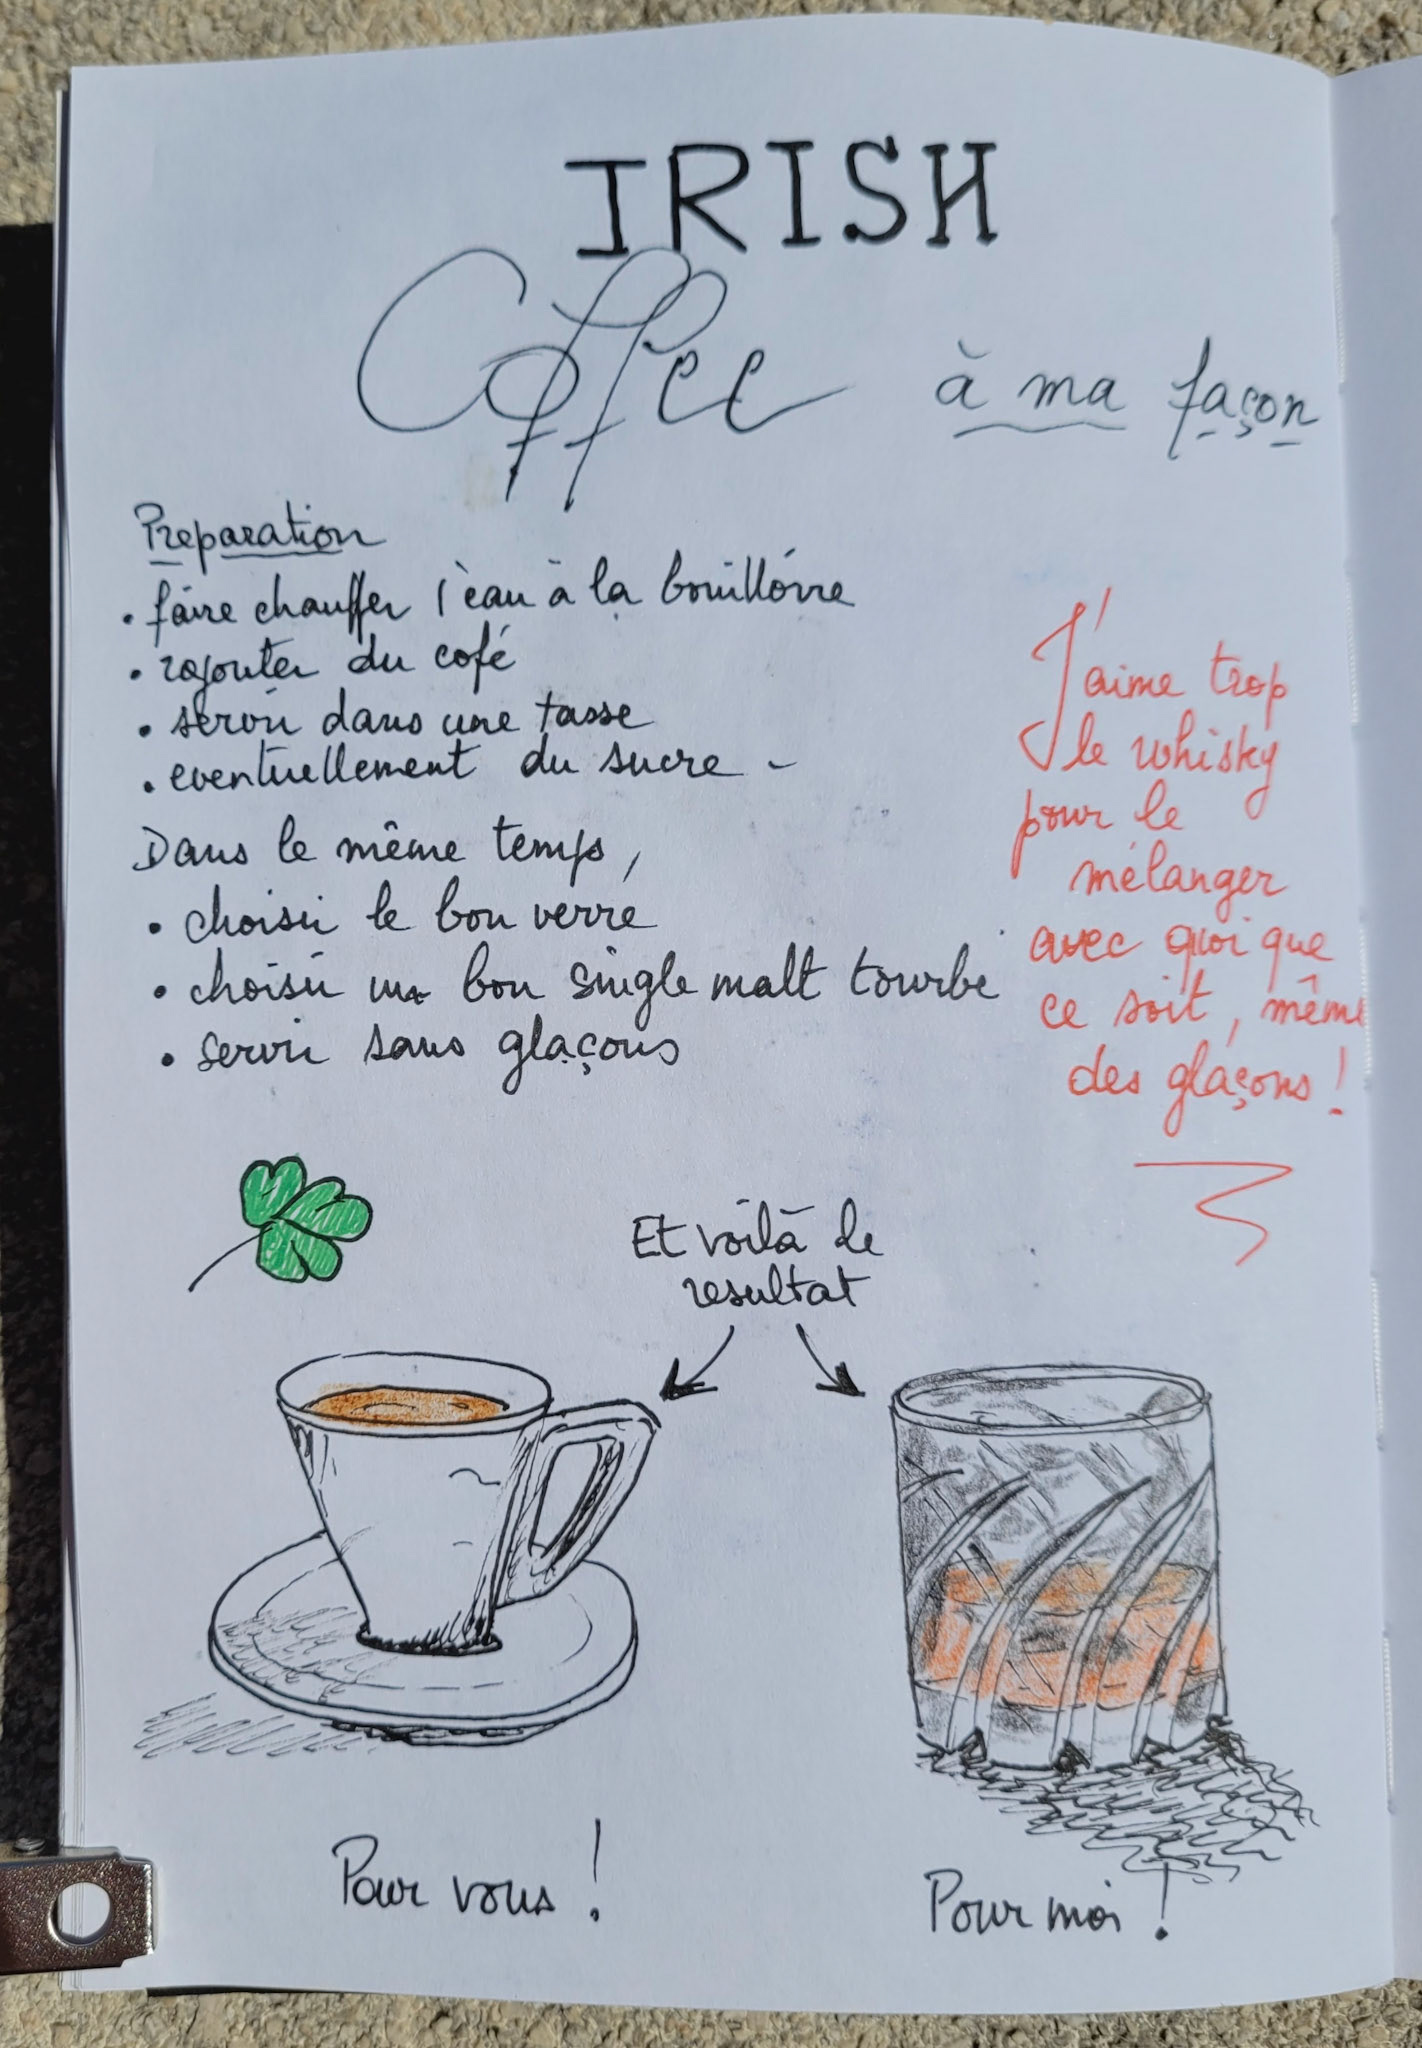 IRISH
Coffee à ma façon
Preparation
• faire chauffer l'eau à la bouilloire
• rajouter du café
• servir dans une tasse
• eventuellement du sucre -
Dans le même temps,
• choisir le bon verre
• choisir un bon single malt tourbé
• servir sans glaçons
J'aime trop
le whisky
pour le
mélanger
avec quoi que
ce soit, même
des glaçons !
Et voilà le
resultat
Pour vous !
Pour moi !